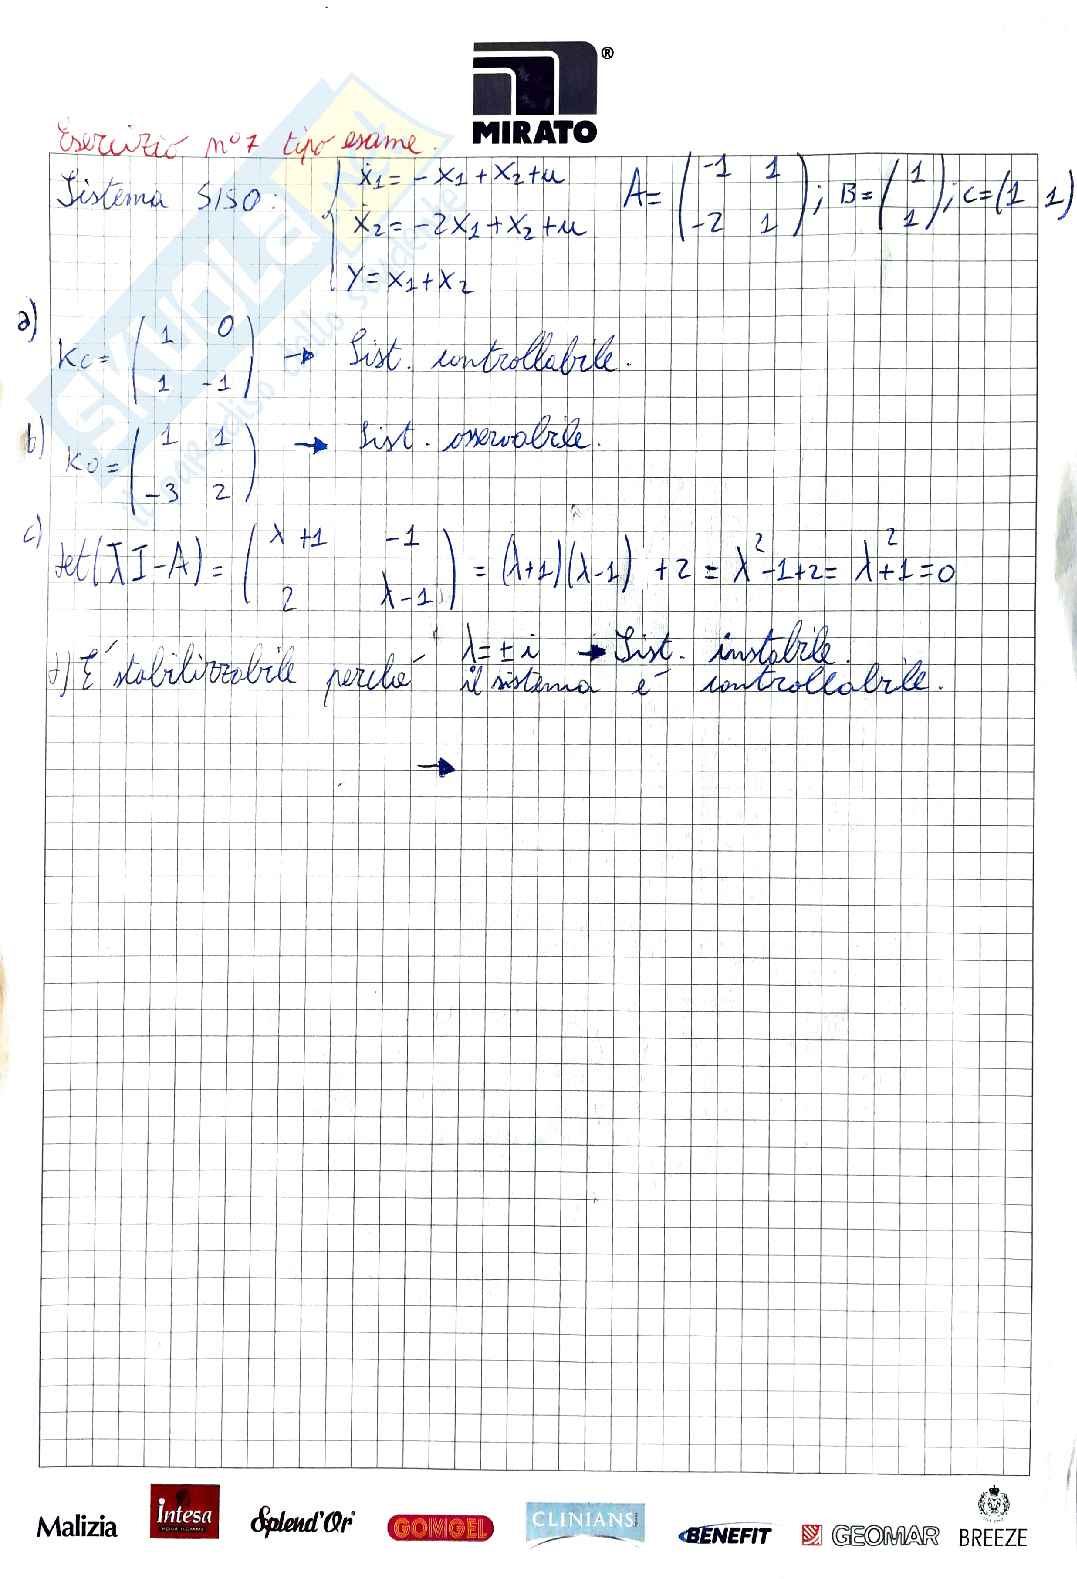 MIRATO ®
Esercizio n° 7 tipo esame.
Sistema SISO: { ẋ1 = -x1 + x2 + u
ẋ2 = -2x1 + x2 + u
y = x1 + x2
A = (-1 1; -2 1); B = (1; 1); C = (1 1)
a) Kc = (1 0; 1 -1) → Sist. controllabile.
b) Ko = (1 1; -3 2) → Sist. osservabile.
c) det(λI-A) = (λ+1 -1; 2 λ-1) = (λ+1)(λ-1) + 2 = λ²-1+2 = λ²+1=0
λ = ± i → Sist. instabile.
d) É stabilizzabile perché il sistema é controllabile.
→
Malizia Intesa Splend'Or GOMGEL CLINIANS BENEFIT GEOMAR BREEZE
SKUOLA